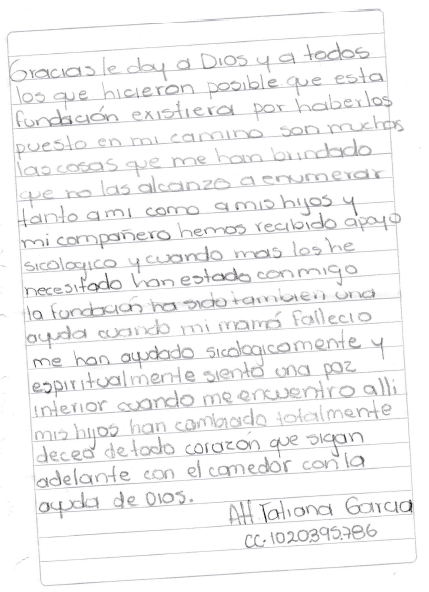 Gracias le doy a Dios y a todos
los que hicieron posible que esta
fundación existiera por haberlos
puesto en mi camino son muchos
las cosas que me han brindado
que no las alcanzo a enumerar
tanto a mi como a mis hijos y
mi compañero hemos recibido apoyo
sicologico y cuando mas los he
necesitado han estado conmigo
la fundación ha sido tambien una
ayuda cuando mi mamá fallecio
me han ayudado sicologicamente y
espiritualmente siento una paz
interior cuando me encuentro alli
mis hijos han cambiado totalmente
deceo de todo corazón que sigan
adelante con el comedor con la
ayuda de Dios.
Att Tatiana Garcia
CC. 1020395786